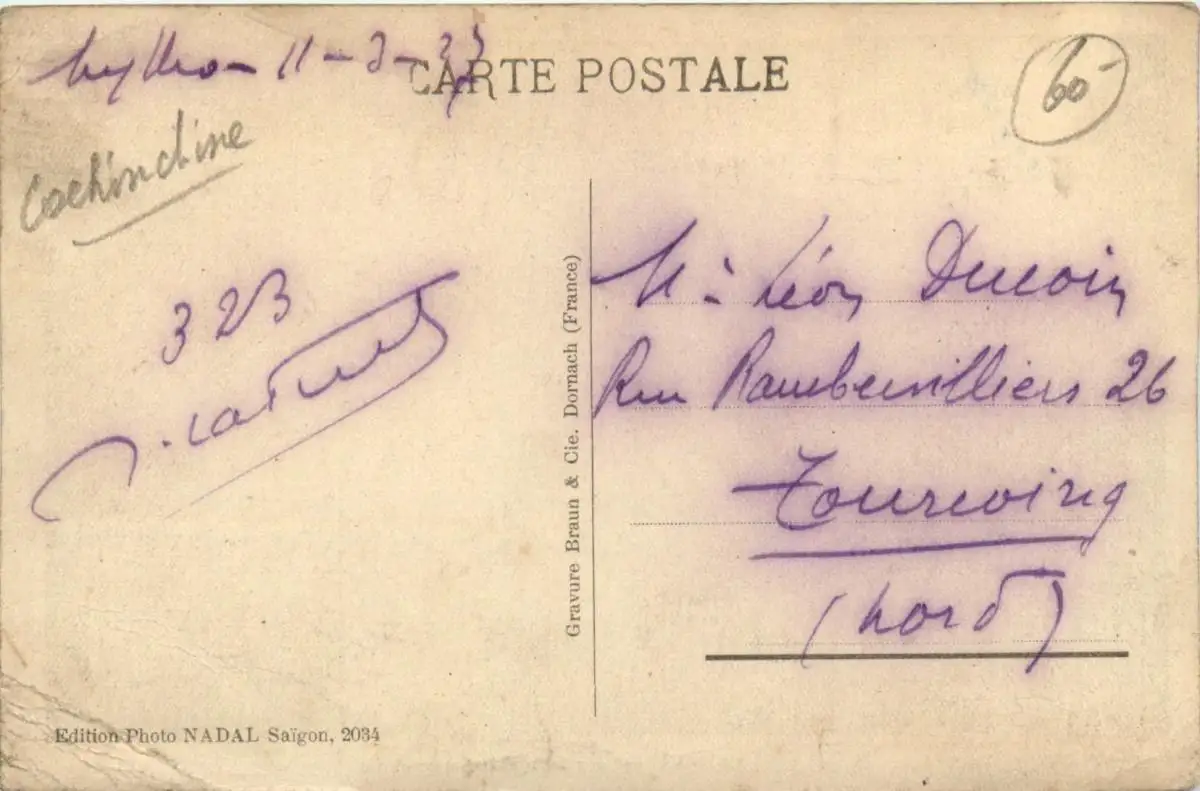 Mytho - 11-3-
CARTE POSTALE
60-
Cochinchine
323
Mr Léon Ducoin
Rue Rambervilliers 26
Tourcoing
(Nord)
Gravure Braun & Cie. Dornach (France)
Edition Photo NADAL Saïgon, 2034